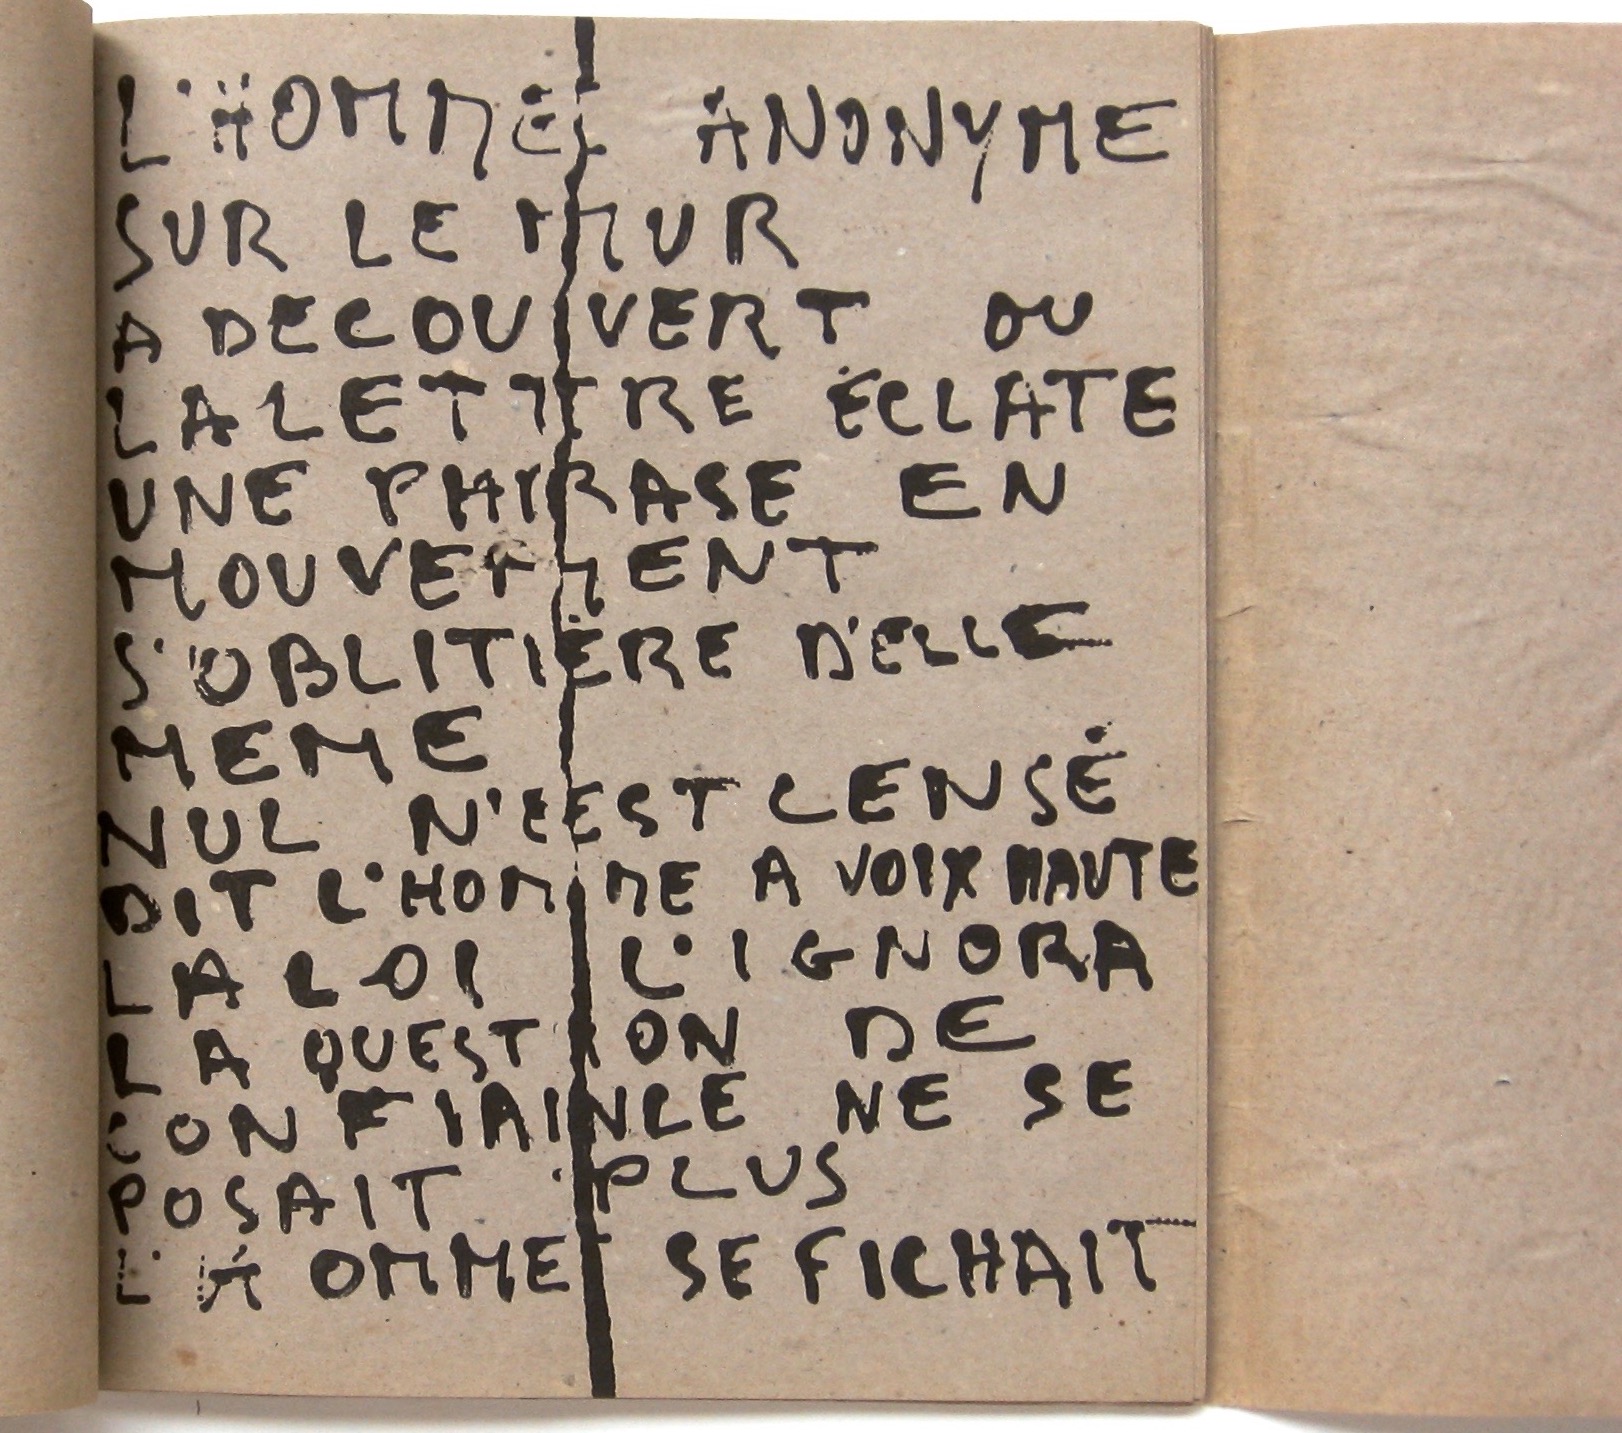 L'HOMME ANONYME
SUR LE MUR
A DECOUVERT OU
LA LETTRE ÉCLATE
UNE PHRASE EN
MOUVEMENT
S'OBLITIÈRE D'ELLE
MEME
NUL N'EEST CENSÉ
DIT L'HOMME A VOIX HAUTE
LA LOI L'IGNORA
LA QUESTION DE
CONFIAINCE NE SE
POSAIT PLUS
L'HOMME SE FICHAIT